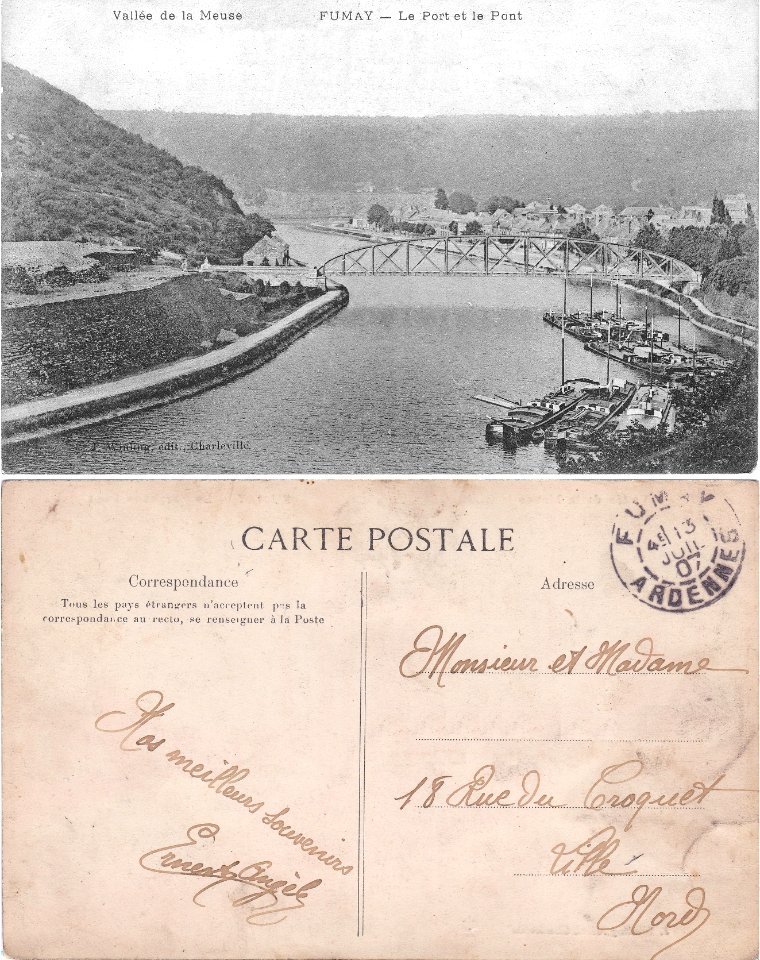 Vallée de la Meuse
FUMAY — Le Port et le Pont
J. Winling, édit., Charleville
CARTE POSTALE
Correspondance
Tous les pays étrangers n'acceptent pas la
correspondance au recto, se renseigner à la Poste
Nos meilleurs souvenirs
Ernest Angèle
Adresse
FUMAY
13
JUIL
07
ARDENNES
Monsieur et Madame
18 Rue du Croquet
Lille
Nord